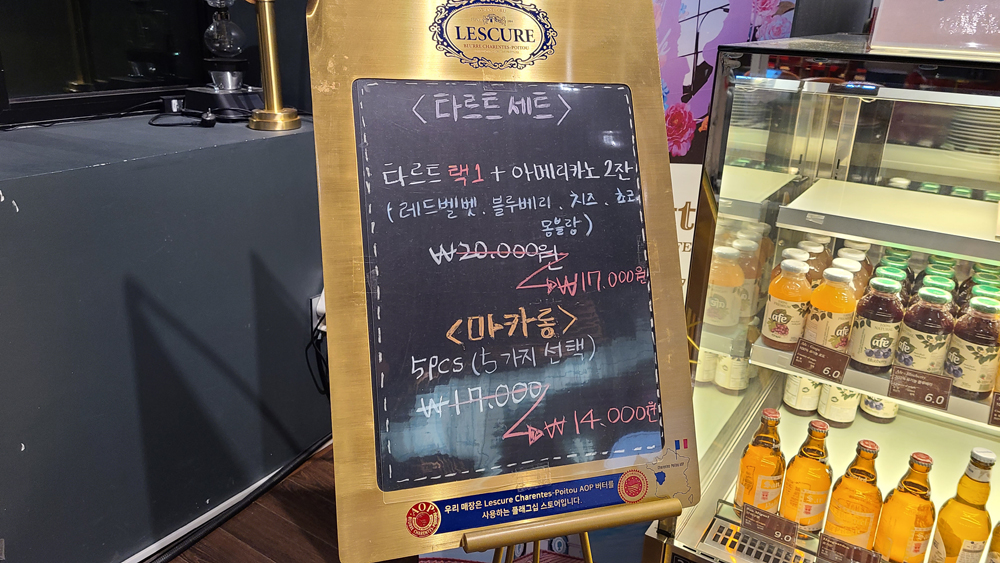 LESCURE
BEURRE CHARENTES-POITOU
<타르트 세트>
타르트 택1 + 아메리카노 2잔
(레드벨벳. 블루베리. 치즈. 쵸코
몽블랑)
₩20.000원
₩17.000원
<마카롱>
5pcs (5가지 선택)
₩17.000
₩14.000원
우리 매장은 Lescure Charentes-Poitou AOP 버터를
사용하는 플래그십 스토어입니다.
AOP
afe
afe
6.0
6.0
9.0